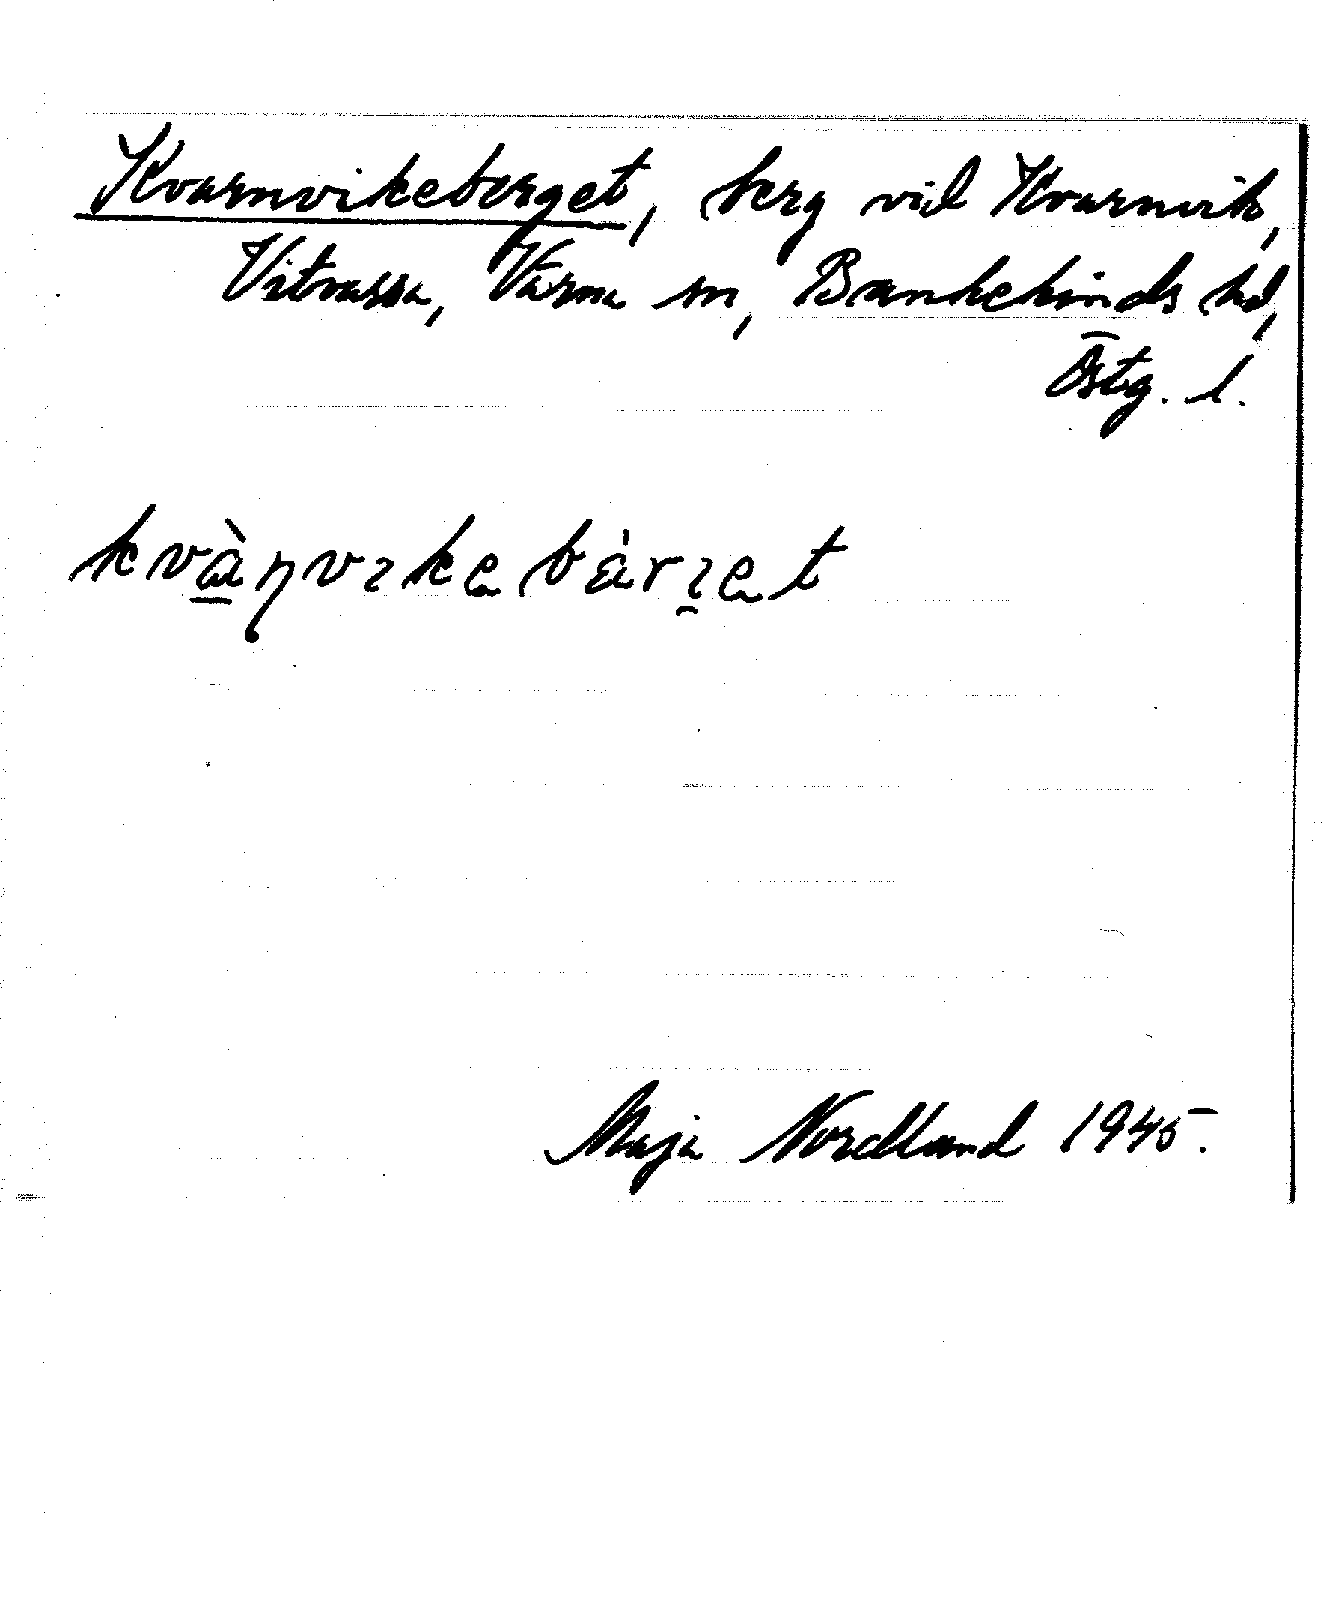 Kvarnvikeberget, berg vid Kvarnvik,
Vitvassa, Värna sn, Bankekinds hd,
Östg. l.
kvàɳvıkebárı̯et
Maja Nordland 1945.